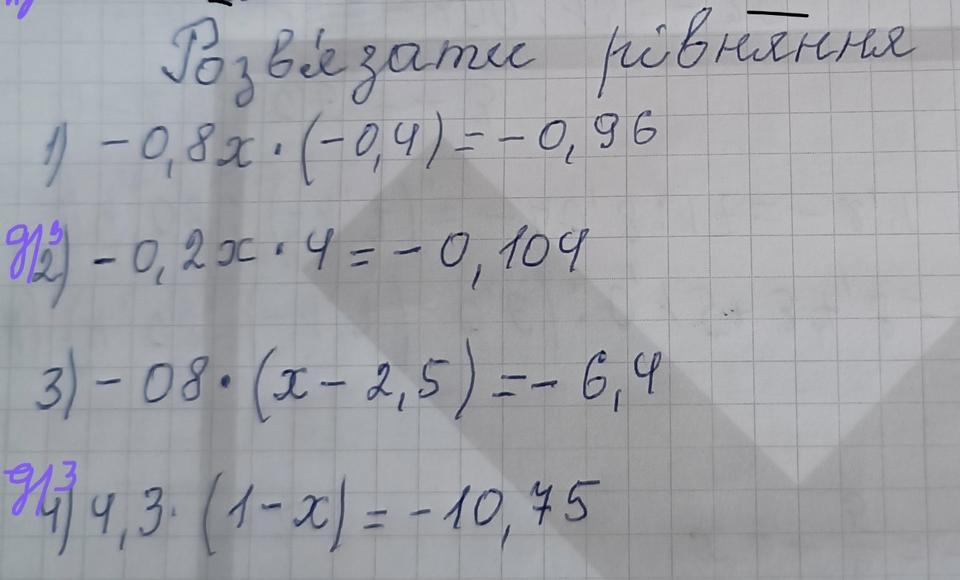 Розв'язати рівняння
1) - 0,8x · (-0,4) = - 0,96
д/з 2) - 0,2x · 4 = - 0,104
3) - 08 · (x - 2,5) = - 6,4
д/з 4) 4,3 · (1 - x) = - 10,75